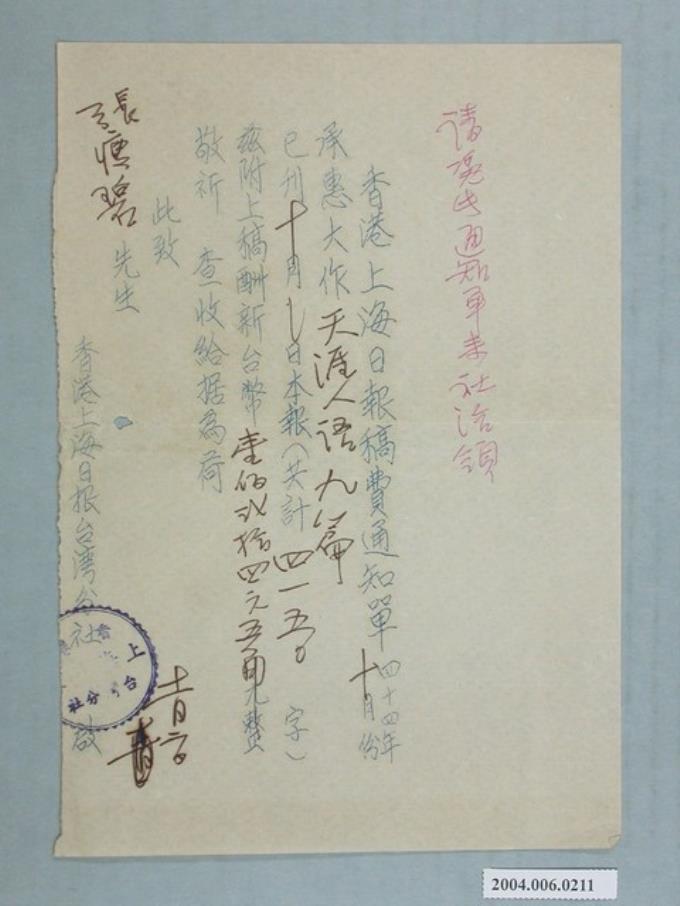 請憑此通知單來社洽領
香港上海日報稿費通知單 四十四年十月份
承惠大作天涯人語九篇
已刊十月 日本報（共計四一五〇字）
茲附上稿酬新台幣壹佰弍拾四元五角元整
敬祈 查收給据為荷
此致
張漱碧先生
香港上海日报台湾分社 啟
上
台
分社
2004.006.0211